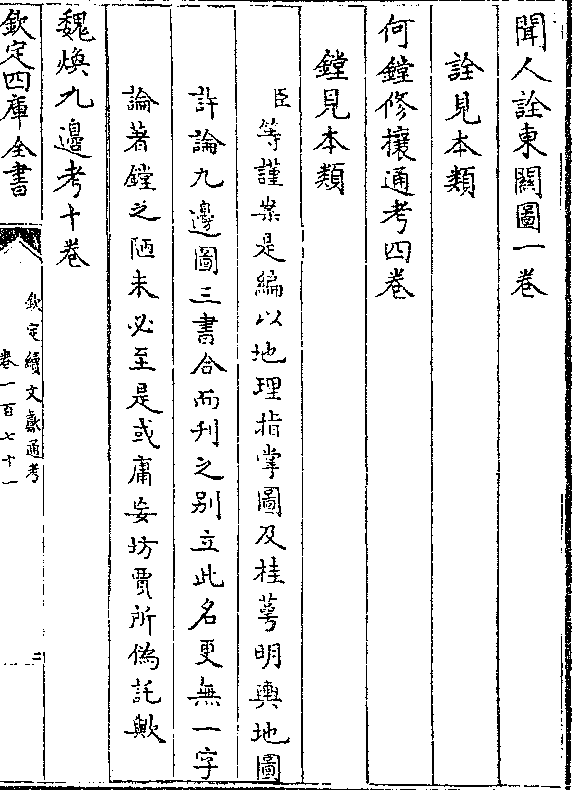 聞人詮東關圖一卷
詮見本類
何鏜修攘通考四卷
鏜見本類
臣等謹案是編以地理指掌圖及桂萼明輿地圖
許論九邊圖三書合而刊之別立此名更無一字
論著鏜之陋未必至是或庸妄坊賈所偽託歟
魏煥九邊考十卷
欽定四庫全書
欽定續文獻通考
卷一百七十一
二